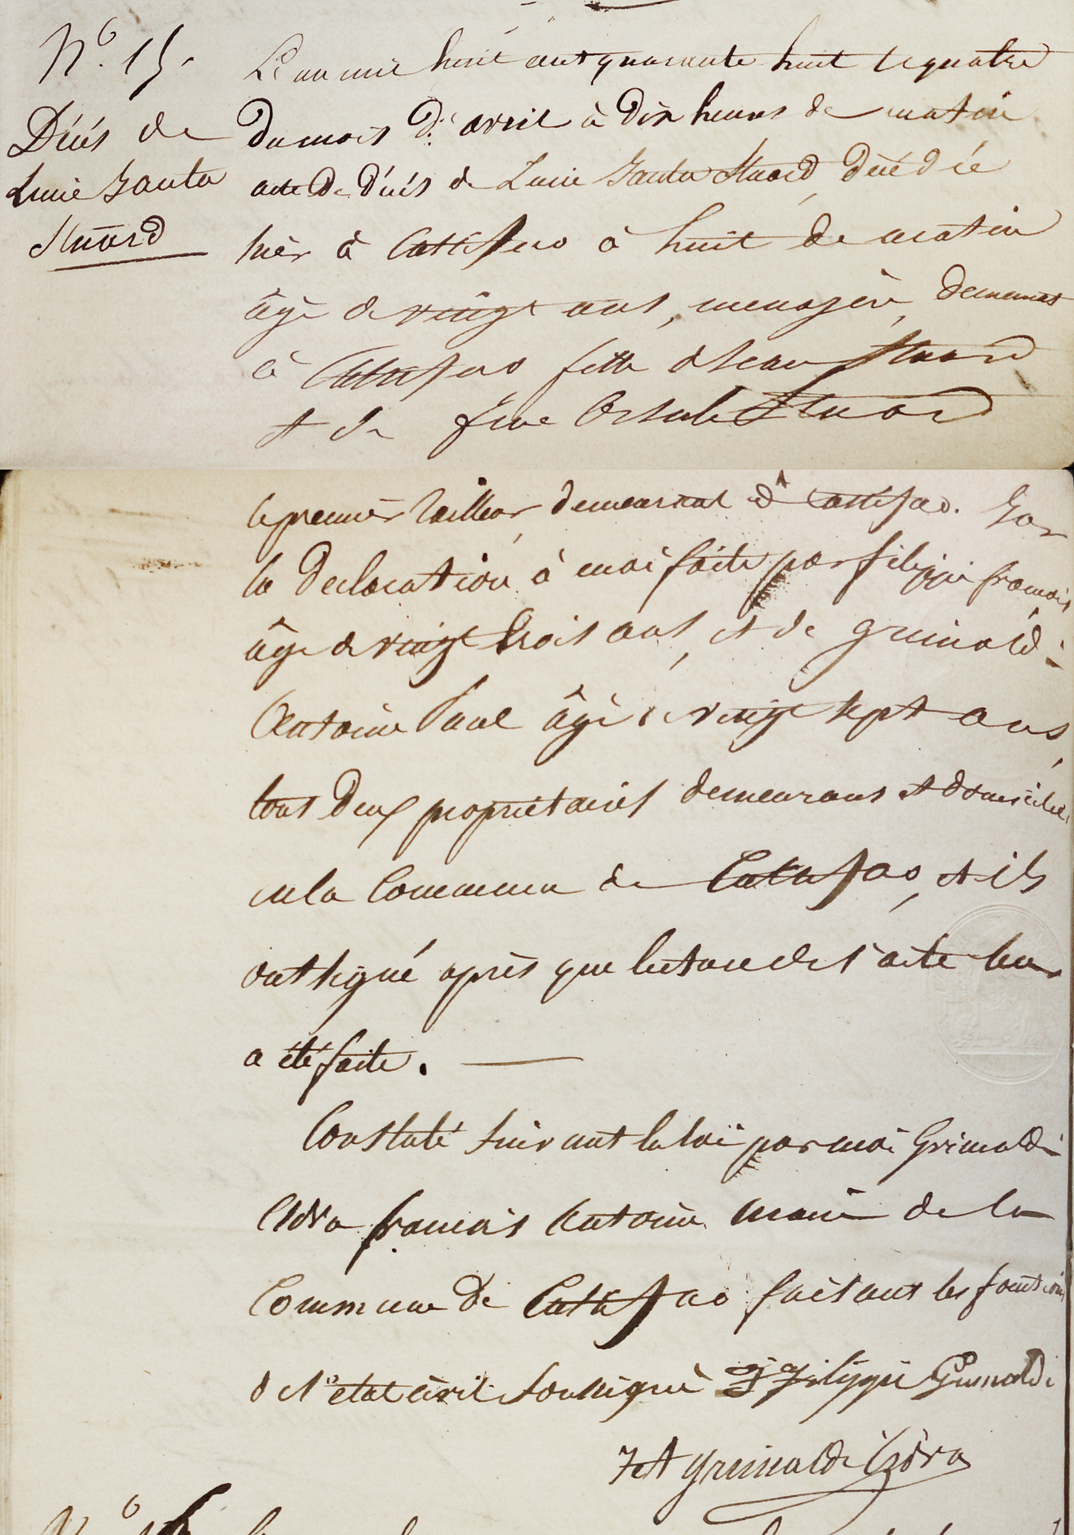 N° 15.
Décés de
Lucie Santa
Stuard
L'an mil huit cent quarante huit le quatre
du mois d'avril à dix heures de matin
acte de décés de Lucie Santa Stuard, décédée
hier à Cattifao à huit de matin
âgé de vingt ans, menagère, demeurant
à Cattifao fille de Jean Stuard
et de feue Orsule Stuard
le premier tailleur demeurant à Cattifao. Sur
la declaration à moi faite par filippi françois
âgé de vingt trois ans, et de grimaldi
Antoine Paul âgé de vingt sept ans,
tous deux propriétaires demeurans et domiciliés
en la Commune de Cattifao, et ils
ont signé après que lecture de l'acte leur
a été faite.
Constaté suivant la loi par moi Grimaldi
françois Antoine maire de la
Commune de Cattifao faisant les fonctions
de l'etat civil soussigné filippi Grimaldi
grimaldi
N°